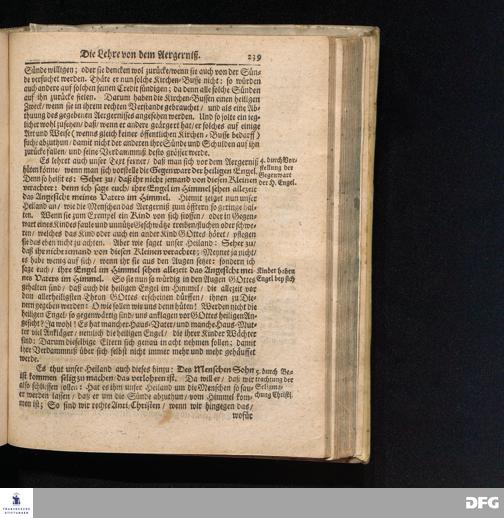 Die Lehre von dem Aergerniß. 239
Sünde willigen; oder sie dencken wol zurücke/wenn sie auch von der Sün-
de versuchet werden. Thäte er nun solche Kirchen-Busse nicht: so würden
auch andere auf solchen seinen Credit sündigen; da denn alle solche Sünden
auf ihn zurücke fielen. Darum haben die Kirchen-Bussen einen heiligen
Zweck/wenn sie in ihrem rechten Verstande gebrauchet/ und als eine Ab-
thuung des gegebenen Aergernisses angesehen werden. Und so solte ein jeg-
licher wohl zusehen/ daß/ wenn er andere geärgert hat/er solches auf einige
Art und Weise (wenns gleich keiner öffentlichen Kirchen-Busse bedarff)
suche abzuthun/damit nicht der anderen ihre Sünde und Schulden auf ihn
zurücke fallen/ und seine Verdammniß desto grösser werde.
Es lehret auch unser Text ferner/ daß man sich vor dem Aergerniß
hüten könne/ wenn man sich vorstelle die Gegenwart der heiligen Engel.
Denn so heißt es: Sehet zu/ daß ihr nicht jemand von diesen Kleinen
verachtet; denn ich sage euch/ ihre Engel im Himmel sehen allezeit
das Angesichte meines Vaters im Himmel. Hiemit zeiget nun unser
Heiland an/ wie die Menschen das Aergerniß zum öfftern so geringe hal-
ten. Wenn sie zum Exempel ein Kind von sich stossen/ oder in Gegen-
wart eines Kindes faule und unnütze Geschwätze treiben/fluchen oder schwe-
ren/ welches das Kind oder auch ein ander Kind GOttes höret/ pflegen
sie das eben nicht zu achten. Aber wie saget unser Heiland: Sehet zu/
daß ihr nicht jemand von diesen Kleinen verachtet; Meynet ja nicht/
es habe wenig auf sich/ wenn ihr sie aus den Augen setzet: sondern ich
sage euch/ ihre Engel im Himmel sehen allezeit das Angesichte mei-
nes Vaters im Himmel. So sie nun so würdig in den Augen GOttes
gehalten sind/ daß auch die heiligen Engel im Himmel/ die allezeit vor
dem allerheiligsten Thron GOttes erscheinen dürffen/ ihnen zu Die-
nern gegeben werden: O wie sollen wir uns denn hüten! Werden nicht die
heiligen Engel/ so gegenwärtig sind/ uns anklagen vor GOttes heiligen An-
gesicht? Ja wohl! Es hat mancher Haus-Vater/ und manche Haus-Mut-
ter viel Ankläger/ nemlich die heiligen Engel/ die ihrer Kinder Wächter
sind: Darum dieselbige Eltern sich genau in acht nehmen sollen; damit
ihr Verdammniß über sich selbst nicht immer mehr und mehr gehäuffet
werde.
Es thut unser Heiland auch dieses hinzu: Des Menschen Sohn
ist kommen selig zu machen/das verlohren ist. Da will er/ daß wir
also schliessen sollen: Hat es ihm unser Heiland um die Menschen so sau-
er werden lassen/ daß er um die Sünde abzuthun/ vom Himmel kom-
men ist; So sind wir rechte Anti-Christen/ wenn wir hingegen das/
wofür
4. durch Vor-
stellung der
Gegenwart
der H. Engel.
Kinder haben
Engel bey sich
5. durch Be-
trachtung der
Seligma-
chung Christi.
FRANCKESCHE
STIFTUNGEN
DFG